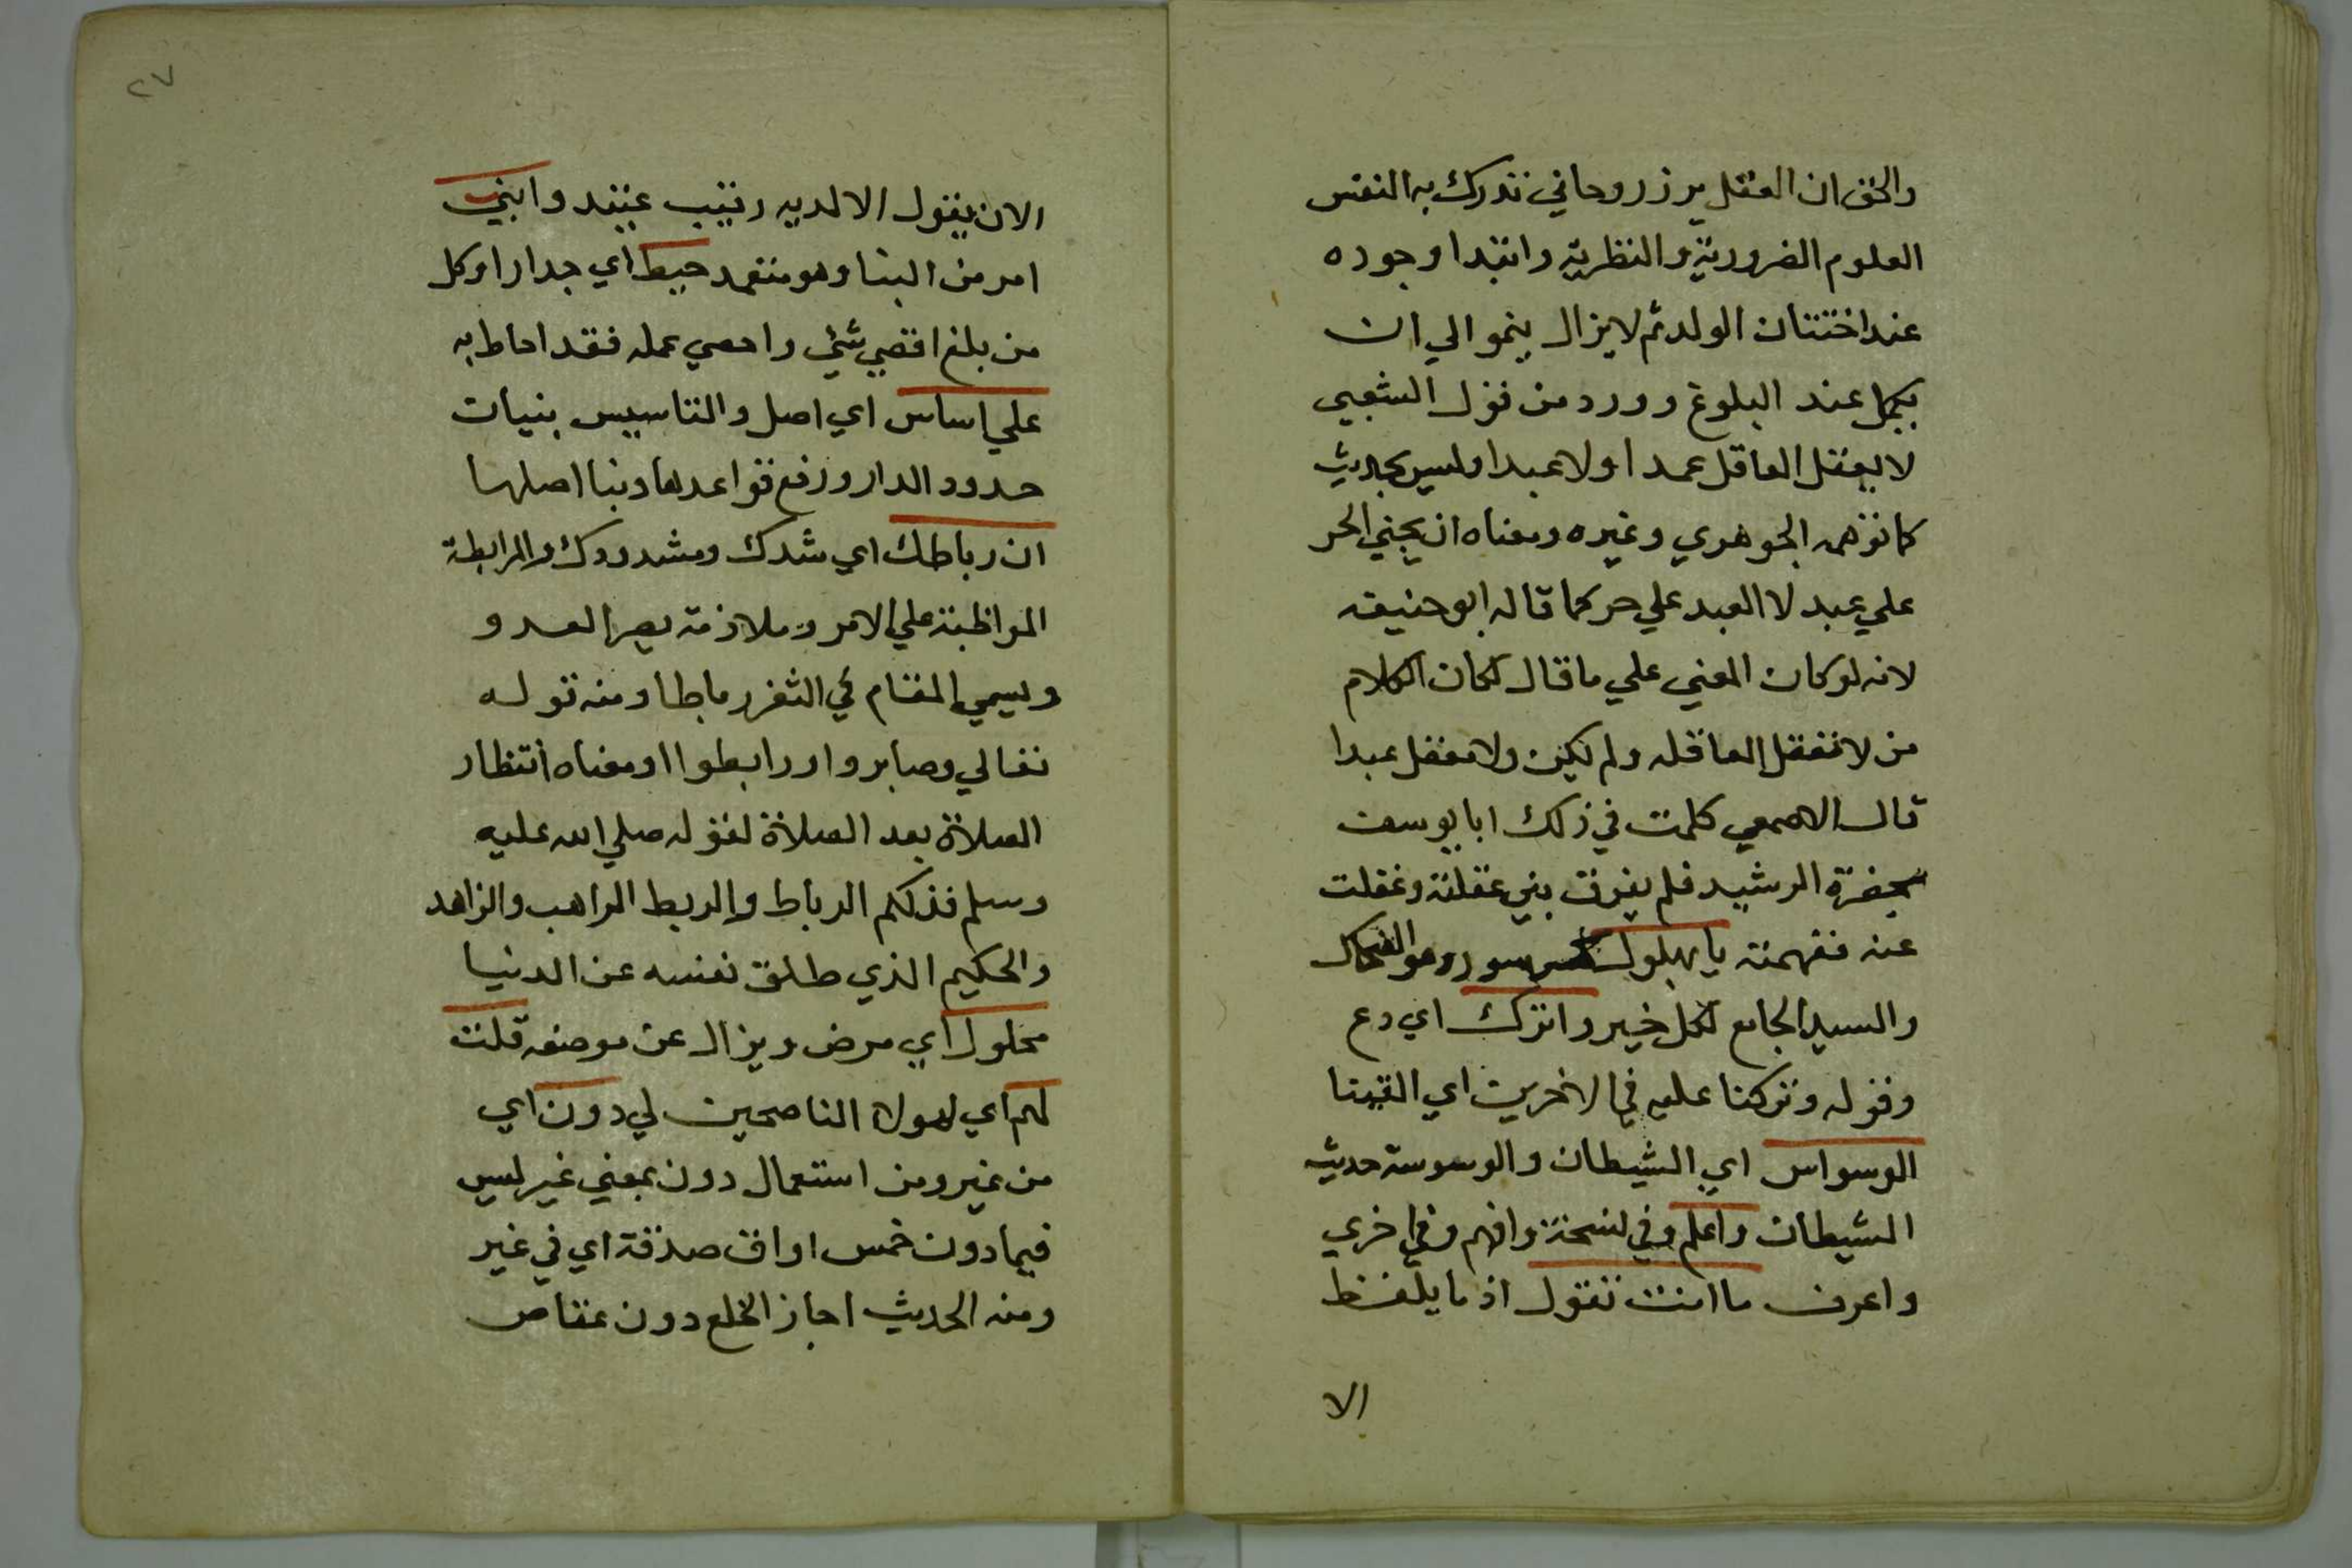 والحق ان العقل يرز روحاني تدرك به النفس
العلوم الضرورية والنظرية وابتدا وجوده
عند اختتان الولد ثم لا يزال ينمو الي ان
يكمل عند البلوغ وورد من قول الشعبي
لا يعقل العاقل عمدا ولا عبدا وليس بحديث
كما توهمه الجوهري وغيره ومعناه ان يجني الحر
علي عبد لا العبد علي حر كما قاله ابو حنيفه
لانه لو كان المعني علي ما قال لكان الكلام
من لا تعقل العاقله ولم يكن ولا معقل عبدا
قال الاصمعي كلمت في ذلك ابا يوسف
بحضرة الرشيد فلم يفرق بين عقلته وعقلت
عنه ففهمته يا بهلول وهو الضحاك
والسيد الجامع لكل خير واترك اي دع
وقوله وتركنا عليه في الاخرين اي القينا
الوسواس اي الشيطان والوسوسة حديث
الشيطان واعلم وفي نسخة وافهم وفي اخري
واعرف ما انت تقول اذ ما يلفظ
الا
٢٧
الان يقول الا لديه رقيب عتيد وابني
امر من البنا وهو متعمد حيط اي جدارا وكل
من بلغ اقصي شئ واحصي عمله فقد احاط به
علي اساس اي اصل والتاسيس بنيات
حدود الدار ورفع قواعدها وبنا اصلها
ان رباطك اي شدك ومشدودك والمرابطة
المواظبة علي الامر وملازمة العدو
ويسمي المقام في الثغر رباطا ومنه قوله
تعالي وصابروا ورابطوا اومعناه انتظار
الصلاة بعد الصلاة لقوله صلي الله عليه
وسلم فذلكم الرباط والربط الراهب والزاهد
والحكيم الذي طلق نفسه عن الدنيا
محلول اي مرض ويزال عن موضعه قلت
لهم اي لهولا الناصحين لي دون اي
من غير ومن استعمال دون بمعني غير ليس
فيما دون خمس اواق صدقة اي في غير
ومنه الحديث اجاز الخلع دون عقاص